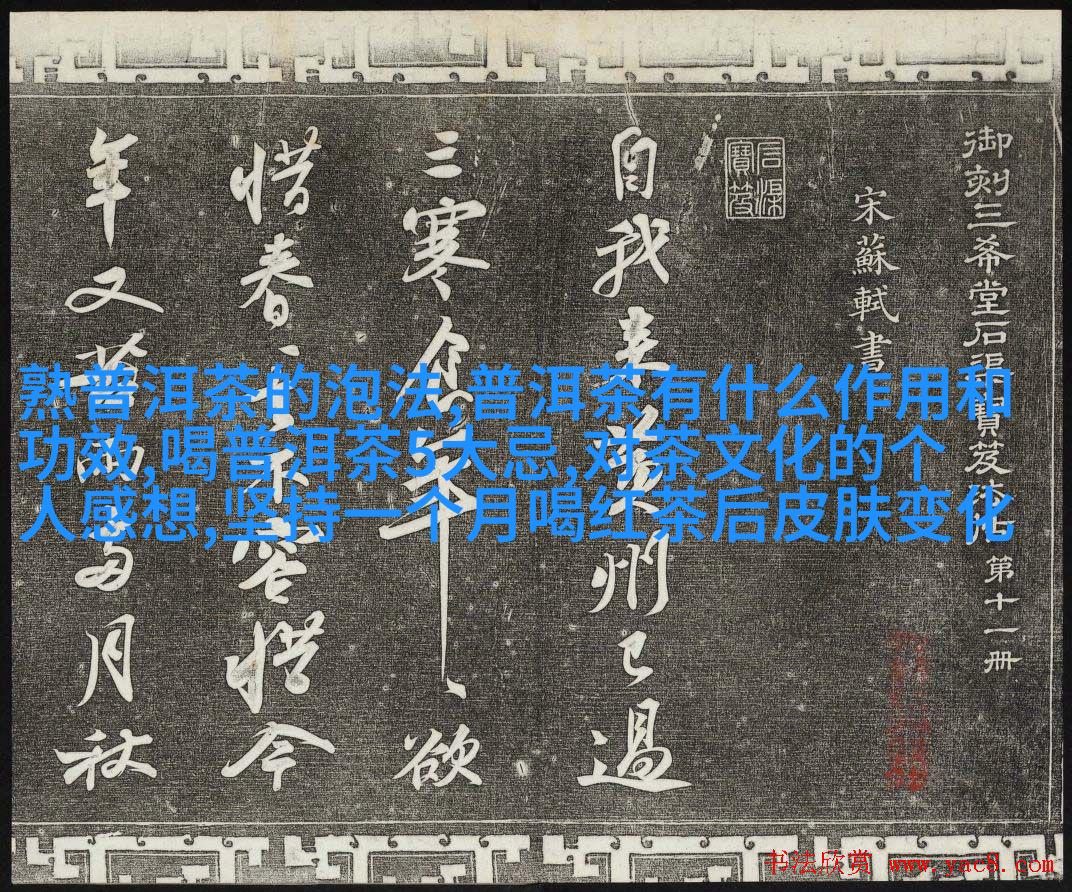 御刻三希堂石渠寶笈法帖第十一册
宋蘇軾書
石渠寶笈
自我来黄州已過
三寒食年、欲
惜春、去不容惜今
年又苦雨两月秋
熟普洱茶的泡法,普洱茶有什么作用和
功效,喝普洱茶5大忌,对茶文化的个
人感想,坚持一个月喝红茶后皮肤变化
书法欣赏 www.yac8.com